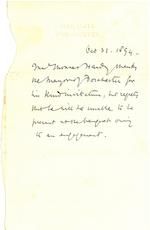 MAX GATE,
DORCHESTER.
Oct 31. 1894.
Mr Thomas Hardy thanks
the Mayor of Dorchester for
his kind invitation, but regrets
that he will be unable to be
present at the banquet owing
to an engagement.